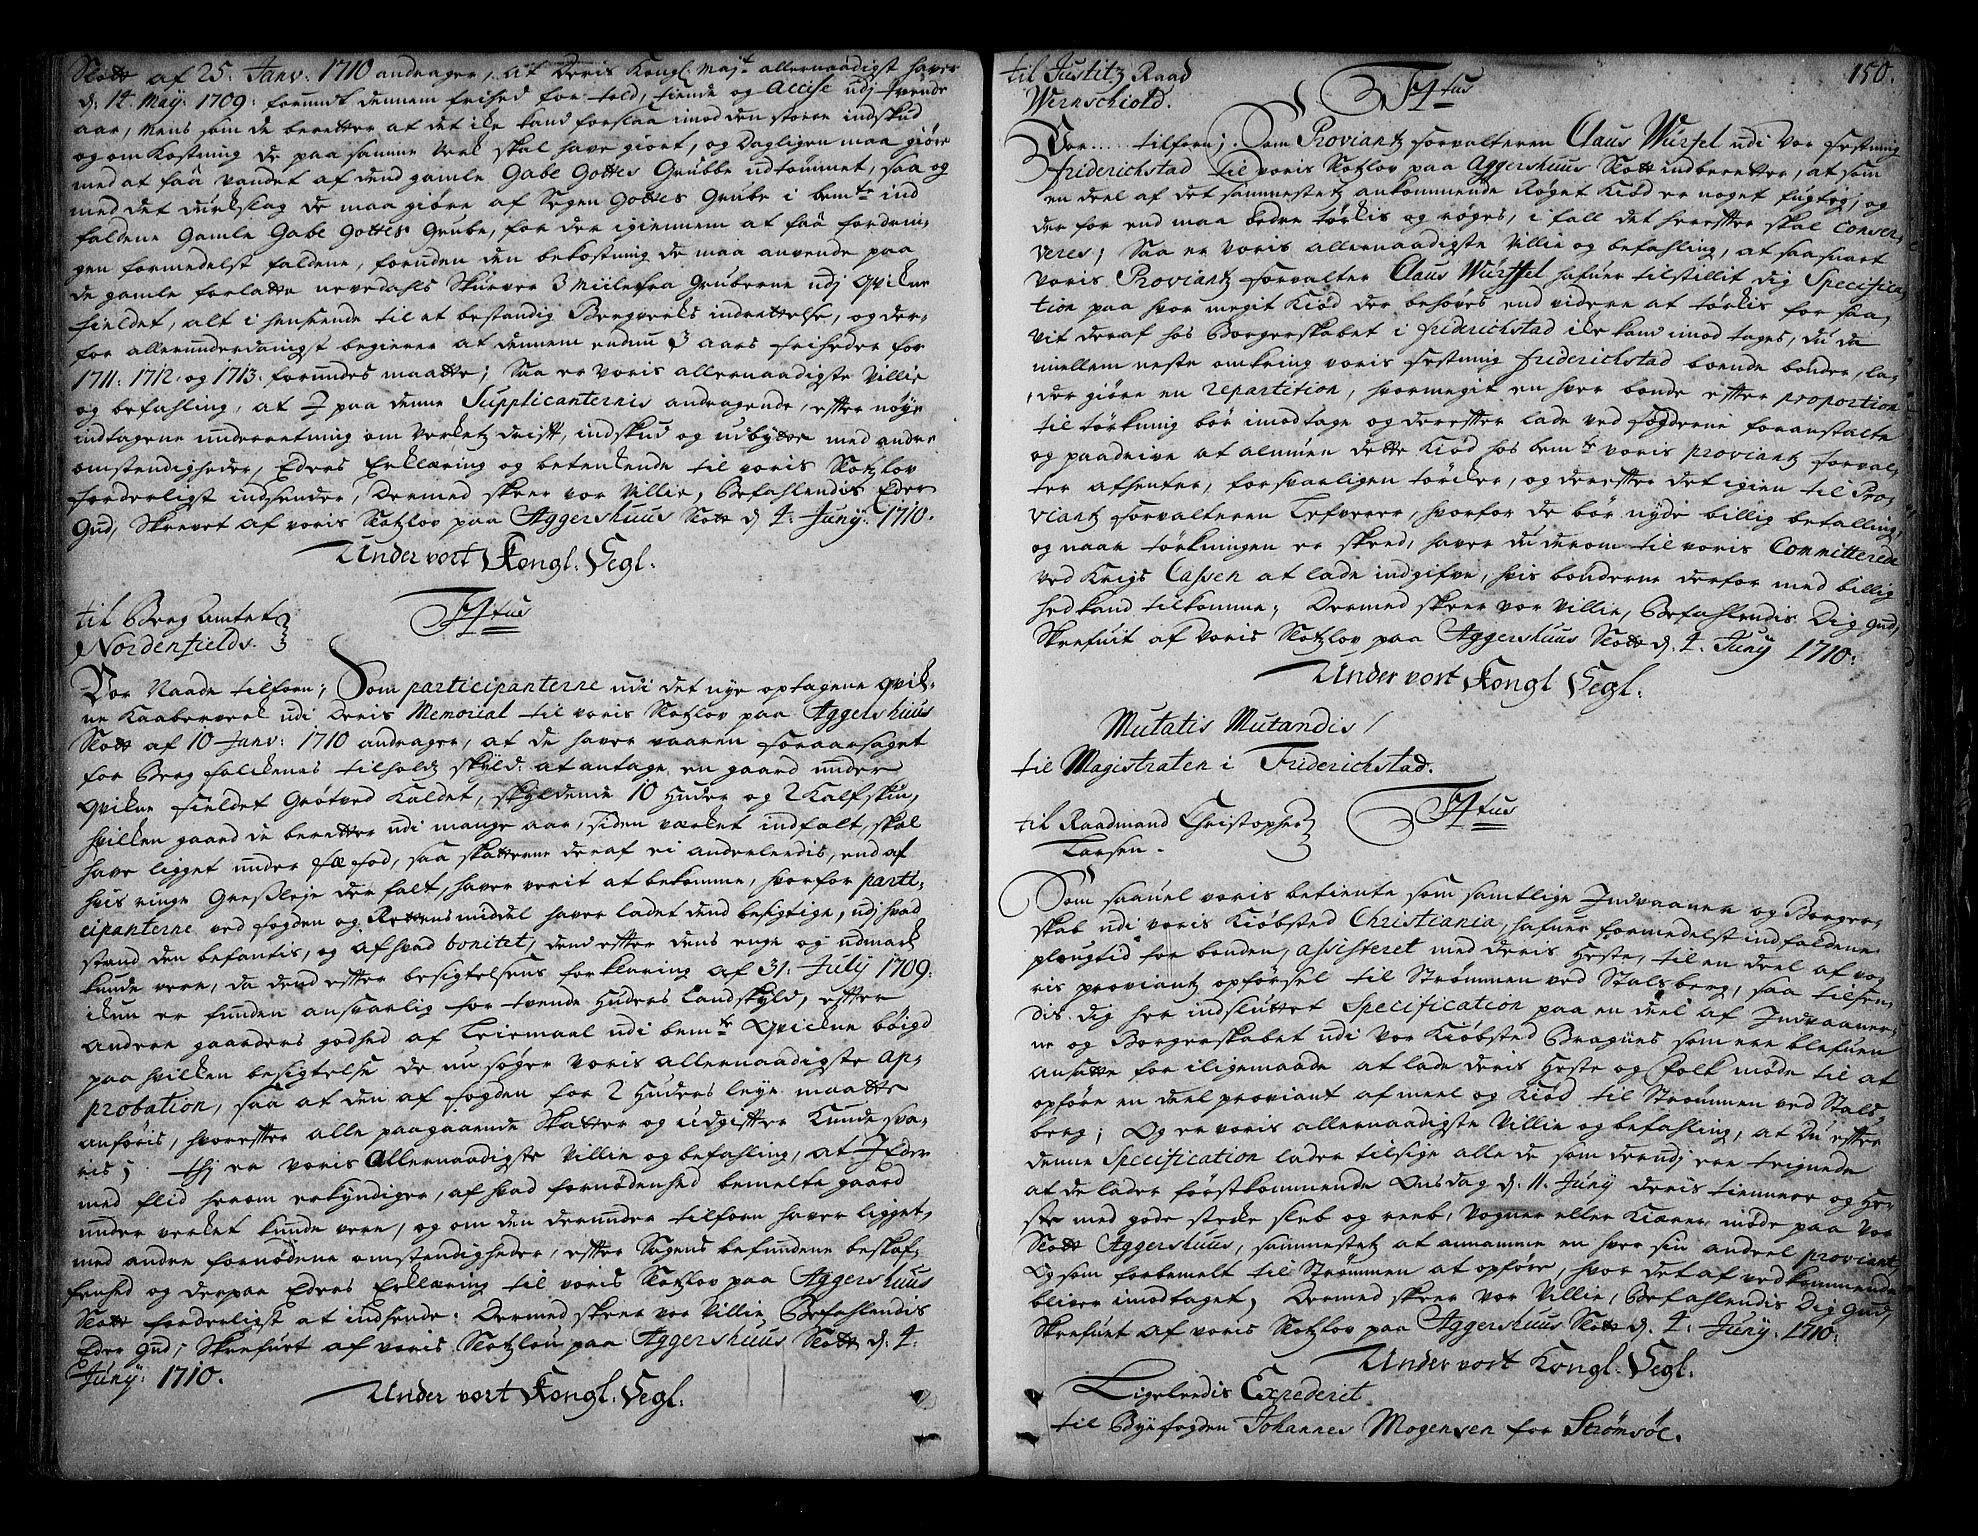 Slott af 25. Janv. 1710 andrager, at Deris Kongl. Mayt. allernaadigst haver
d. 14. May. 1709. forundt dennem frihed for told, tiende og Accise udj tvende
aar, Mens som de beretter at det icke kand forslaa imod den store indskud
og omkostning de paa samme Verk skal have giort, og Dagligen maa giøre
med at faa vandet af dend gamle Gabe Gottes Grubbe udtømmet, saa og
med det durkslag de maa giøre af Segen Gottes Grube i bemte. ind
faldene Gamle Gabe Gottes Grube, for der igiennem at faa fordrin-
gen formedelst faldene, foruden den bekostning de maa anvende paa
de gamle forlatte Skurver 3 miile fra Gruberne udj Qvikne
fieldet, alt i henseende til et bestandig Bergverks indrettelse, og der-
for allerunderdanigst begierer at dennem endnu 3 aars friheder for
1711. 1712. og 1713. forundes maatte; Saa er Voris allernaadigste Villie
og befahling, at I paa denne Supplicanternis andragende, efter nøye
indtagene underretning om Verketz drift, indskud og udbytte med andre
omstendigheder, Eders Erklæring og betenkende til voris Slotzlov
forderligst indsender, Dermed skeer vor Villie, Befahlendis Eder
Gud, Skrevet af voris Slotzlov paa Aggershuus Slott d. 4. Juny. 1710.
Under vort Kongl. Segl.
til Berg Amtet
Nordenfields.
Titus
Vor Naade tilforn; Som participanterne udi det nye optagene Qvik-
ne Kaaberverk udi Deris Memorial til voris Slotzlov paa Aggershuus
Slott af 10 Janv. 1710 andrager, at de haver vaaren foraarsaget
for Berg folckenes tilholds skyld at antage en gaard under
Qvikne fieldet Grøtved kaldet, skyldende 10 Huder og 2 Kalfskin,
hvilken gaard de beretter udi mange aar, siden værket indfalt, skal
have ligget under fæ fod, saa skatterne deraf ei anderledis, end af
hvis ringe Gresleje der falt, haver verit at bekomme, hvorfor parti-
cipanterne ved fogden og Rettens middel haver ladet dend besigtige, udj hvad
stand den befantis, og af hvad bonitet, dend efter dens enge og udmark
kunde vere, da dend efter besigtelsens forklaring af 31. July 1709.
icken er funden ansvarlig for tvende Huders Landskyld, efter
andere gaarders godhed af Leiermaal udi bemte. Qvickne bøigd
paa hvilken besigtelse de nu søger Voris allernaadigste ap-
probation, saa at den af fogden for 2 Huders leye maatte
anføris, hvorefter alle paagaaende Skatter og udgifter kunde sva-
ris; Thj er Voris Allernaadigste Villie og befahling, at I Eder
med flid herom erkyndiger, af hvad fornødenhed bemelte gaard
under verket kunde vere, og om den derunder tilforn haver ligget,
med andre fornødene omstendigheder, efter Sagens befundene beskaf-
fenhed og derpaa Eders Erklæring til voris Slotzlov paa Aggershuus
Slott forderligst at indsende. Dermed skeer vor Villie, Befahlendis
Eder Gud, Skrefvet af voris Slotzlov paa Aggershuus Slott d. 4.
Juny. 1710.
Under vort Kongl. Segl.
150.
til Justitz Raad
Wernschiold.
Titus
Vor ..... tilforn; Som Proviantz forvalteren Claus Würfel udi Vor festning
friderichstad til voris Slotzlov paa Aggershuus Slott indberetter, at som
en deel af det sammestetz ankommende Røget Kiød er noget fugtig, og
der for end maa bedre tørkis og røges, i fall det herefter skal conser-
veres; Saa er Voris allernaadigste Villie og befahling, at saa snart
Voris Proviantz forvalter Claus Würffel hafver tilstillit dig Specifica-
tion paa hvor megit Kiød der behøves end videre at tørkis for saa
vit deraf hos Borgerskabet i friderichstad ike kand imod tages, du da
imellem neste omkring voris festning friderichstad boende bønder, la-
der giøre en repartition, hvormegit en hver bonde efter proportion
til tørkning bør imodtage og derefter lade ved fogderne foranstalte
og paadrive at almuen dette Kiød hos bemte. voris proviantz forval-
ter afhenter, forsvarligen tørker, og derefter det igien til Pro-
viantz forvalteren Lefverer, hvorfor de bør nyde billig betalling,
og naar tørkningen er skeed, haver du derom til voris Committerede
ved Krigs Cassen at lade indgifve, hvis bønderne derfor med billig
hed kand tilkomme; Dermed skeer vor Villie, Befahlendis Dig Gud,
Skrefvit af Voris Slotzlov paa Aggershuus Slott d. 4. Juny 1710.
Under vort Kongl Segl.
Mutatis Mutandis/
til Magistraten i Friderichstad.
til Raadmand Christopher
Larsen.
Titus
Som saavel voris betiente som samtlige Indvaaner og Borger-
skab udi voris Kiøbsted Christiania, hafver formedelst indfaldene
plougtid for bonden, assisteret med deris Heste, til en deel af vo-
ris proviantz opførsel til Strømmen ved Stalsberg, saa tilsen-
dis dig her indsluttet Specification paa en deel af Indvaaner-
ne og Borgerskabet udi Vor Kiøbsted Bragnes som ere blefven
ansatte for iligemaade at lade deris Heste og folk møde til at
opføre en deel proviant af meel og Kiød til Strømmen ved Stals-
berg; Og er voris allernaadigste Villie og befahling, at Du efter
denne Specification lader tilsige alle de som derudj ere teignede
at de lader førstkommende Onsdag d. 11. Juny deris tiennere og He-
ste med gode sterke sleb og reeb, Vogner eller Kierrer, møde paa vor
Slott Aggershuus, sammestetz at annamme en hver sin andeel proviant,
Og som forbemelt til Strømmen at opføre, hvor det af vedkommende
bliver imodtaget, Dermed skeer Vor Villie, Befahlendis Dig Gud,
Skrefvet af voris Slotzlov paa Aggershuus Slott d. 4. Juny. 1710.
Under vort Kongl. Segl.
Ligeleedis Expederet
til Byefogden Johannes Mogensen for Strømsøe.